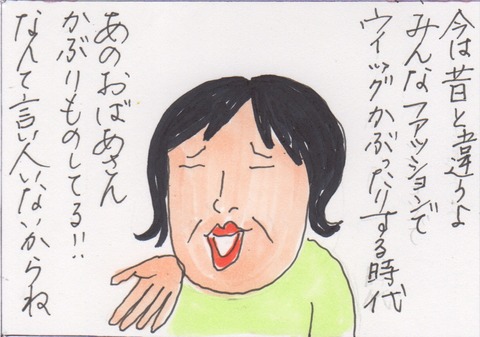 今は昔と違うよ
みんなファッションで
ウイッグかぶったりする時代
あのおばあさん
かぶりものしてる!!
なんて言い人いないからね